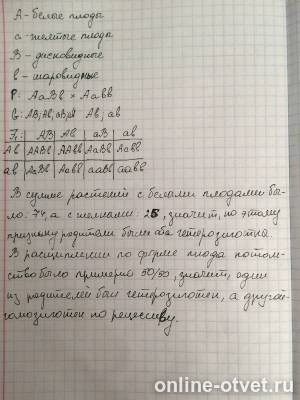 А - белые плоды
а - желтые плоды
В - дисковидные
в - шаровидные
Р: АаВв × Аавв
G: АВ; Ав; аВ; ав Ав; ав
F₁: АВ Ав аВ ав
Ав ААВв ААвв АаВв Аавв
ав АаВв Аавв ааВв аавв
В сумме растений с белыми плодами бы-
ло 74, а с желтыми значит, по этому
признаку родители были оба гетерозиготны.
В расщеплении по форме плода потом-
ство было примерно 50/50, значит, один
из родителей был гетерозиготен, а другой-
гомозиготен по рецессиву.
online-otvet.ru